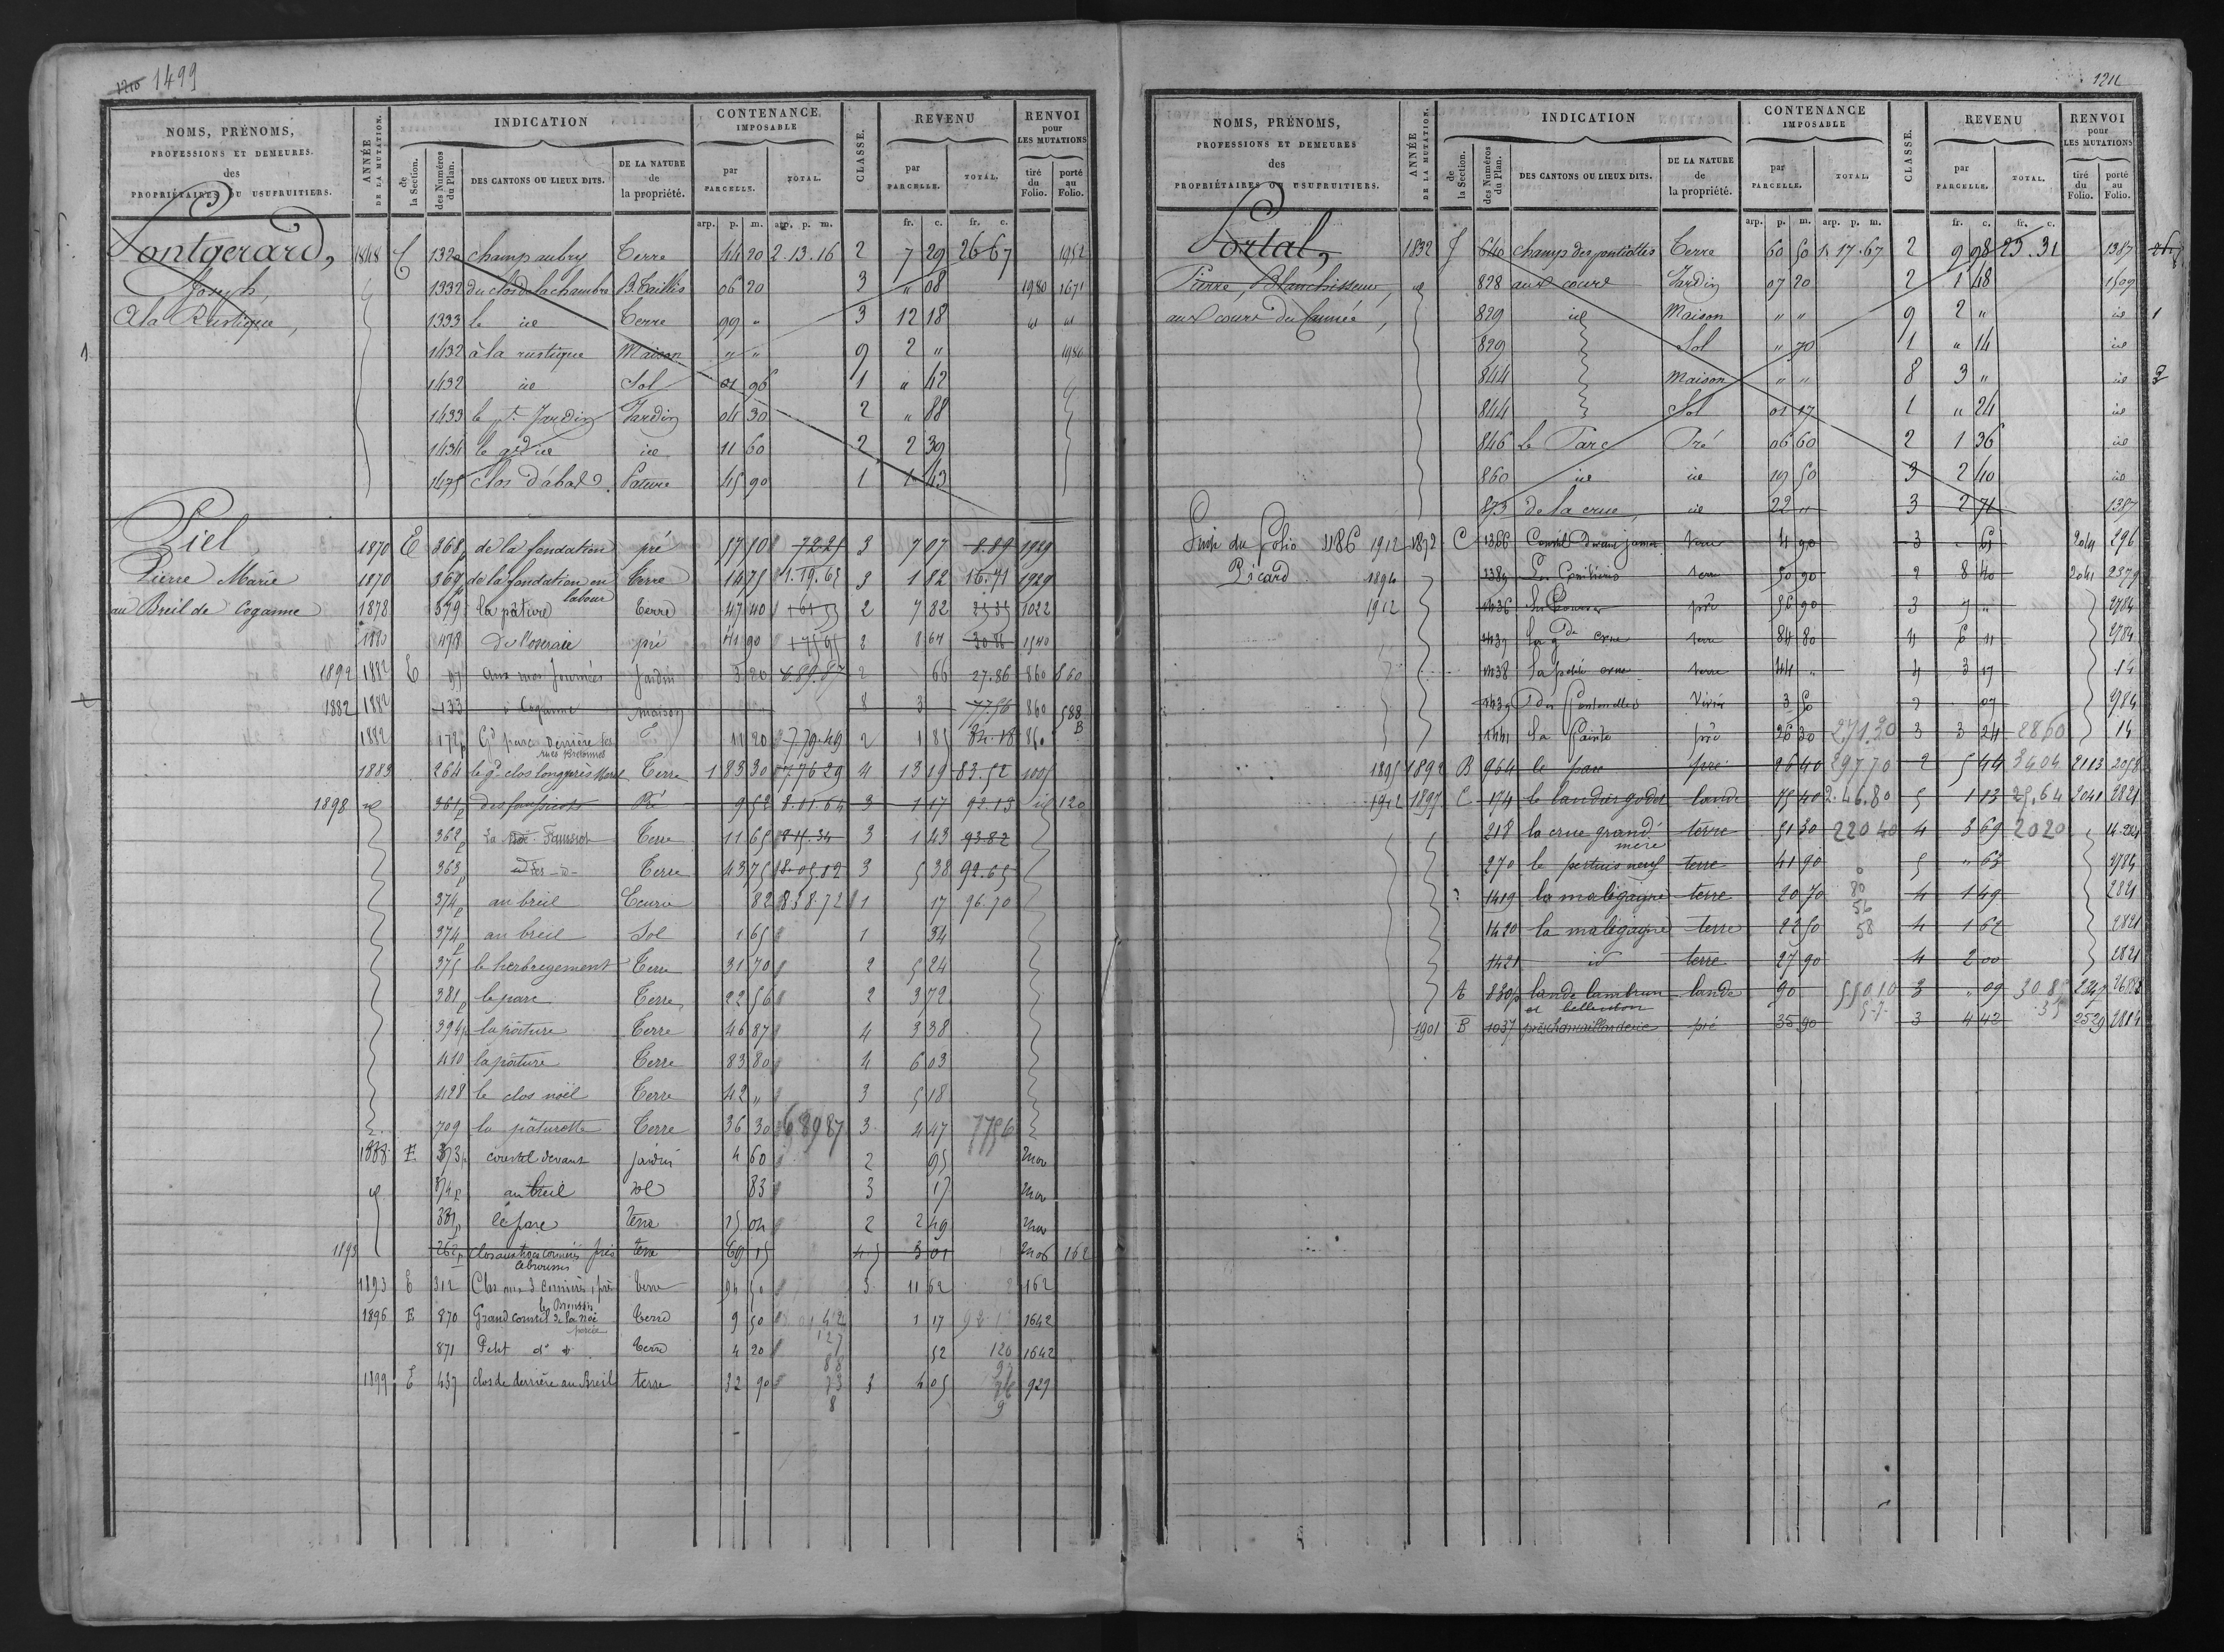 1210 1499
NOMS, PRÉNOMS,
PROFESSIONS ET DEMEURES.
des
PROPRIÉTAIRES OU USUFRUITIERS.
ANNÉE
DE LA MUTATION.
INDICATION
de
la Section.
des Numéros
du Plan.
DES CANTONS OU LIEUX DITS.
DE LA NATURE
de
la propriété.
CONTENANCE
IMPOSABLE
par
PARCELLE.
TOTAL.
CLASSE.
REVENU
par
PARCELLE.
TOTAL.
RENVOI
pour
LES MUTATIONS
tiré
du
Folio.
porté
au
Folio.
arp. p. m. arp. p. m. fr. c. fr. c.
Pontgerard, 1848 1320 champ aubry Terre 44 20 2.13.16 2 7 29 26 67 1952
Joseph, 1332 du clos de la chambre B. Taillis 06 20 3 " 08 1980 1671
A la Rustique, 1333 le id Terre 99 " 3 12 18 id id
1 1432 à la rustique Maison " " 9 2 " 1980
1432 id Sol 01 96 1 " 42
1433 le pt Jardin Jardin 04 30 2 " 88
1434 le gd id id 11 60 2 2 39
1475 clos d'abas Pature 45 90 1 1 43
Piel 1870 E 368 de la fondation pré 57 10 72 25 3 7 07 8.89 1929
Pierre Marie 1870 369 de la fondation en labour Terre 14 75 1.19.65 3 1 82 16.71 1929
au Breil de Coganne 1878 379 la pâture terre 47 40 2 7 82 1022
1880 478 De l'oseraie pré 41 90 2 8 64 30 86 1540
1892 1882 E 97 aux mes Journées Jardin 3 20 6.89.87 2 66 27.86 860 860
1882 1882 133 à Coganne maison 8 3 77.56 860 588 B
1882 172p Gd parc Derrière les rues Bretonnes T 11 20 7 79.49 2 1 85 84.18 860
1883 264 le gd clos long près Morel Terre 1 83 30 7 76 29 4 13 19 83.52 1005
1898 id 361p Pré 9 52 8.01.64 3 1 17 92.13 id 120
362p Terre 11 65 8 15.34 3 1 43 93.82
363p Terre 43 75 8.05.82 3 5 38 92.65
374p au breil Ecurie 82 8 38.72 1 17 96.70
374p au breil Sol 1 65 1 34
375 le herbregement Terre 31 70 2 5 24
381p le parc Terre 22 56 2 3 72
394p la pâture Terre 46 87 4 3 38
410 la pâture Terre 83 80 4 6 03
428 le clos noël Terre 42 " 3 5 18
709 la pâturette Terre 36 30 6 89 87 3 4 47 77 56
1888 E 373p courtil devant jardin 4 60 2 95
id 374p au breil sol 83 3 17
381p le parc terre 15 04 2 2 49
1893 262p clos aux trois cormiers près terre 69 15 4 5 3 01 2106 162
1893 E 312 Clos aux 3 Cormiers, près Terre 94 50 3 11 62 162
1896 E 870 Grand courtil de la noë Terre 9 50 1 17 92.13 1642
871 Petit do do Terre 4 20 52 120 1642
1899 E 437 clos de derrière au Breil terre 32 90 3 4 05 929
1211
NOMS, PRÉNOMS,
PROFESSIONS ET DEMEURES
des
PROPRIÉTAIRES OU USUFRUITIERS.
ANNÉE
DE LA MUTATION.
INDICATION
de
la Section.
des Numéros
du Plan.
DES CANTONS OU LIEUX DITS.
DE LA NATURE
de
la propriété.
CONTENANCE
IMPOSABLE
par
PARCELLE.
TOTAL.
CLASSE.
REVENU
par
PARCELLE.
TOTAL.
RENVOI
pour
LES MUTATIONS
tiré
du
Folio.
porté
au
Folio.
arp. p. m. arp. p. m. fr. c. fr. c.
Portal, 1832 J 640 champs des pentiottes Terre 60 50 1.17.67 2 9 98 23.31 1387
Pierre, Blanchisseur, id 828 aux cours Jardin 07 20 2 1 48 1509
aux cours du Launée, 829 id Maison " " 9 2 " id 1
829 Sol " 70 1 " 14 id
844 Maison " " 8 3 " id 2
844 Sol 01 17 1 " 24 id
846 Le Parc Pré 06 60 2 1 36 id
860 id id 19 50 3 2 40 id
873 de la crue, id 22 " 3 2 71 1387
Suite du Folio 486 1912 1872 C 1386 Courtil Terre 4 90 3 " 61 2044 296
Picard 1894 1389 terre 50 90 2 8 40 2041 2379
1912 1436 pré 56 90 3 7 " 2784
1437 La gde crue terre 84 80 4 6 11 2784
1438 La petite crue terre 44 " 4 3 17 14
1439 des Fontenelles Vivier 3 50 2 07 2784
1441 La Pointe pré 26 30 271.20 3 3 24 28 60 14
1895 1892 B 964 le parc pré 26 40 297 70 2 5 44 34 04 2113 2058
1912 1897 C 174 le landier godot lande 75 40 2.46.80 5 1 13 25.64 2041 2821
218 la crue grand' mère terre 51 30 220 40 4 3 69 20 20
270 le pertuis neuf terre 41 90 5 " 63 2784
1419 la maligagne terre 20 70 80 4 1 49 2821
56
1420 la maligagne terre 22 50 58 4 1 62 2821
1421 id terre 27 90 4 2 00 2821
A 830p lande lambrun lande 90 3 " 09 30 85 2347
et bellevision
1901 B 1037 près pré 35 90 3 4 42 2529 2814